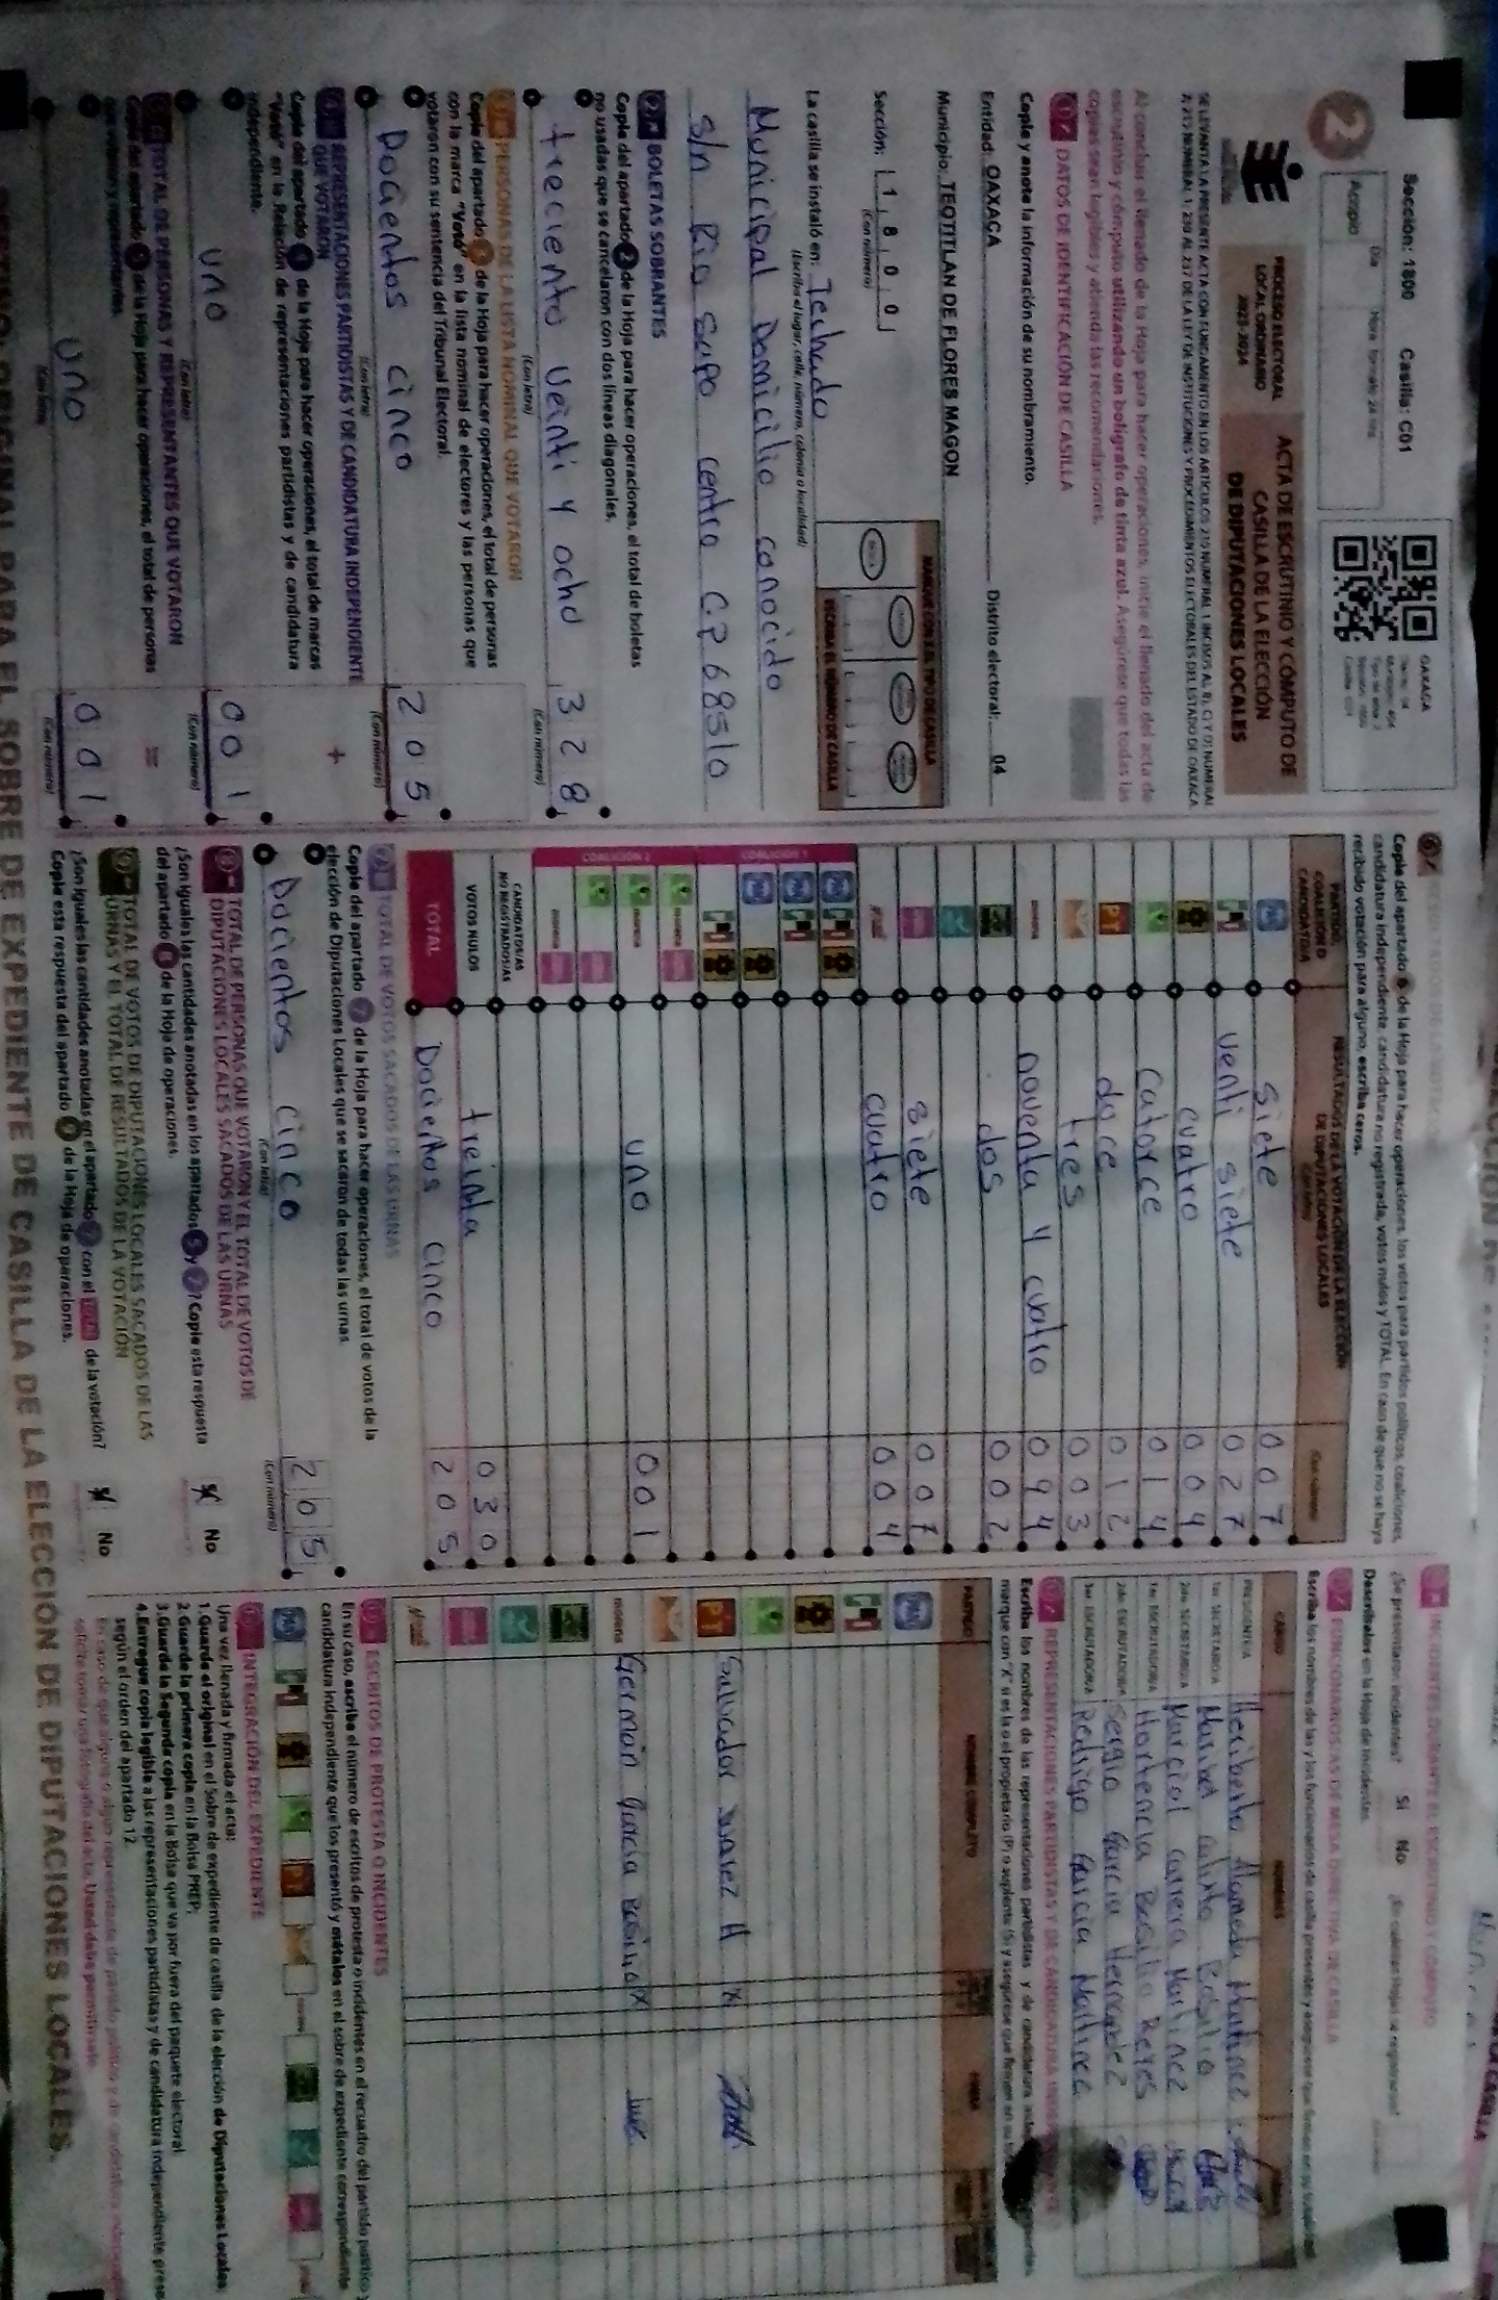 Sección: 1800 Casilla: C01
Día Hora formato 24 hrs
Acopio
OAXACA
2
PROCESO ELECTORAL
LOCAL ORDINARIO
2023-2024
ACTA DE ESCRUTINIO Y CÓMPUTO DE
CASILLA DE LA ELECCIÓN
DE DIPUTACIONES LOCALES
Al concluir el llenado de la Hoja para hacer operaciones, inicie el llenado del acta de
escrutinio y cómputo utilizando un bolígrafo de tinta azul. Asegúrese que todas las
copias sean legibles y atienda las recomendaciones.
1 DATOS DE IDENTIFICACIÓN DE CASILLA
Copie y anote la información de su nombramiento.
Entidad: OAXACA Distrito electoral: 04
Municipio: TEOTITLAN DE FLORES MAGON
Sección: 1 8 0 0
(Con número)
MARQUE CON X EL TIPO DE CASILLA
ESCRIBA EL NÚMERO DE CASILLA
La casilla se instaló en: Techado
(Escriba el lugar, calle, número, colonia o localidad)
Municipal Domicilio conocido
s/n Rio Sapo centro C.P 68510
2 BOLETAS SOBRANTES
Copie del apartado 2 de la Hoja para hacer operaciones, el total de boletas
no usadas que se cancelaron con dos líneas diagonales.
treciento veinti y ocho 3 2 8
(Con letra) (Con número)
PERSONAS DE LA LISTA NOMINAL QUE VOTARON
Copie del apartado 3 de la Hoja para hacer operaciones, el total de personas
con la marca "Votó" en la lista nominal de electores y las personas que
votaron con su sentencia del Tribunal Electoral.
Docientos cinco 2 0 5
(Con letra) (Con número)
REPRESENTACIONES PARTIDISTAS Y DE CANDIDATURA INDEPENDIENTE
QUE VOTARON
+
Copie del apartado 4 de la Hoja para hacer operaciones, el total de marcas
"Votó" en la Relación de representaciones partidistas y de candidatura
independiente.
uno 0 0 1
(Con letra) (Con número)
TOTAL DE PERSONAS Y REPRESENTANTES QUE VOTARON
=
Copie del apartado 5 de la Hoja para hacer operaciones, el total de personas
que votaron y representantes.
uno 0 0 1
(Con letra) (Con número)
6
Copie del apartado 6 de la Hoja para hacer operaciones, los votos para partidos políticos, coaliciones,
candidatura independiente, candidatura no registrada, votos nulos y TOTAL. En caso de que no se haya
recibido votación para alguno, escriba ceros.
PARTIDO,
COALICIÓN O
CANDIDATO/A
RESULTADOS DE LA VOTACIÓN DE LA ELECCIÓN
DE DIPUTACIONES LOCALES
(Con letra)
(Con número)
PAN siete 0 0 7
PRI venti siete 0 2 7
cuatro 0 0 4
catorce 0 1 4
PT doce 0 1 2
tres 0 0 3
morena noventa y cuatro 0 9 4
dos 0 0 2
siete 0 0 7
cuatro 0 0 4
COALICIÓN 1
COALICIÓN 2
morena uno 0 0 1
morena
CANDIDATOS/AS
NO REGISTRADOS/AS
VOTOS NULOS treinta 0 3 0
TOTAL Docientos cinco 2 0 5
7 TOTAL DE VOTOS SACADOS DE LAS URNAS
Copie del apartado 7 de la Hoja para hacer operaciones, el total de votos de la
elección de Diputaciones Locales que se sacaron de todas las urnas.
Docientos cinco 2 0 5
(Con letra) (Con número)
8 TOTAL DE PERSONAS QUE VOTARON Y EL TOTAL DE VOTOS DE
DIPUTACIONES LOCALES SACADOS DE LAS URNAS
¿Son iguales las cantidades anotadas en los apartados 5 y 7? Copie esta respuesta
del apartado 8 de la Hoja de operaciones.
X No
9 TOTAL DE VOTOS DE DIPUTACIONES LOCALES SACADOS DE LAS
URNAS Y EL TOTAL DE RESULTADOS DE LA VOTACIÓN
¿Son iguales las cantidades anotadas en el apartado 7 con el TOTAL de la votación?
Copie esta respuesta del apartado 9 de la Hoja de operaciones.
X No
INCIDENTES DURANTE EL ESCRUTINIO Y CÓMPUTO
¿Se presentaron incidentes? Sí No
Descríbalos en la Hoja de incidentes.
FUNCIONARIOS/AS DE MESA DIRECTIVA DE CASILLA
CARGO NOMBRES
PRESIDENTE/A Heriberto Alameda Martinez
1er. SECRETARIO/A Maribel
2do. SECRETARIO/A Marcial carrera Martinez
1er. ESCRUTADOR/A Hortencia Basilio Reyes
2do. ESCRUTADOR/A Sergio Garcia Hernandez
3er. ESCRUTADOR/A Rodrigo Garcia Martinez
REPRESENTACIONES PARTIDISTAS Y DE CANDIDATURA
Escriba los nombres de las representaciones partidistas y de candidatura
marque con "X" si es la o el propietario (P) o suplente (S) y asegúrese que firmen en su
PARTIDO NOMBRE COMPLETO FIRMA
PAN
PRI
PT Salvador Juarez H X
morena German Garcia Basilio X
ESCRITOS DE PROTESTA O INCIDENTES
En su caso, escriba el número de escritos de protesta o incidentes en el recuadro del partido político
candidatura independiente que los presentó y métalos en el sobre de expediente correspondiente
INTEGRACIÓN DEL EXPEDIENTE
Una vez llenada y firmada el acta:
1. Guarde el original en el Sobre de expediente de casilla de la elección de Diputaciones Locales
2. Guarde la primera copia en la Bolsa PREP.
3. Guarde la Segunda copia en la Bolsa que va por fuera del paquete electoral
4. Entregue copia legible a las representaciones partidistas y de candidatura independiente
según el orden del apartado 12
DESTINO: ORIGINAL PARA EL SOBRE DE EXPEDIENTE DE CASILLA DE LA ELECCIÓN DE DIPUTACIONES LOCALES.